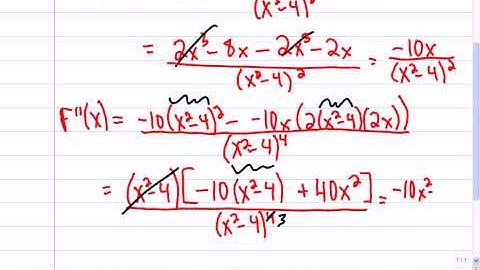 (x²-4)²
= (2x³ - 8x - 2x³ - 2x)/(x²-4)² = -10x/(x²-4)²
F''(x) = (-10(x²-4)² - -10x(2(x²-4)(2x)))/(x²-4)⁴
= ((x²-4)[-10(x²-4) + 40x²])/(x²-4)⁴³ = -10x²
1/1